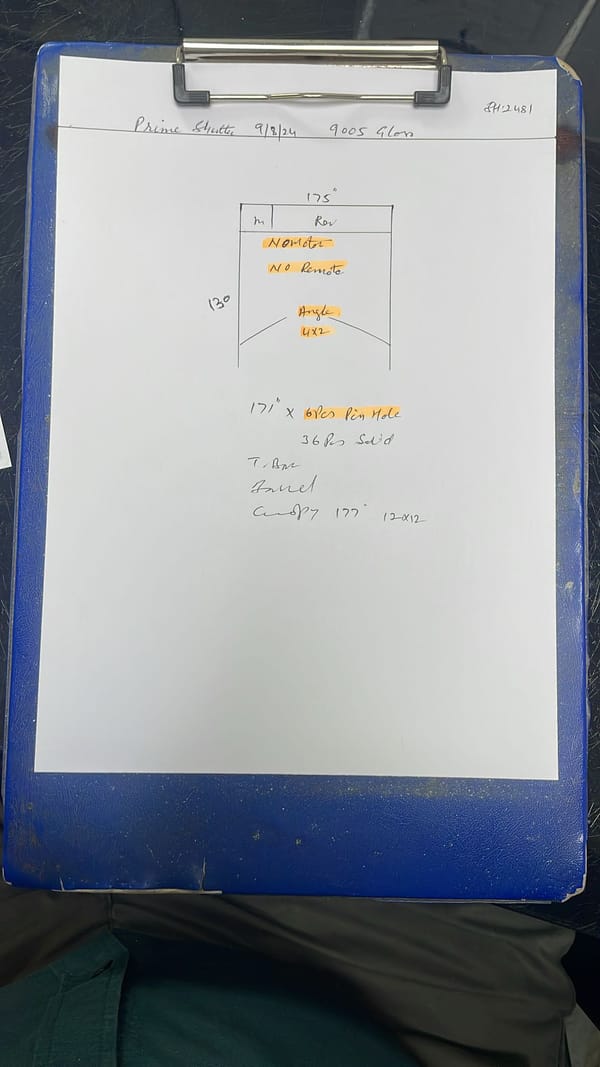 SH:2481
Prime Shutter 9/8/24 9005 Gloss
175"
m Rev
NO Motor
NO Remote
130
Angle
4x2
171" x 6Pcs Pin Hole
36 Pcs Solid
T. Bar
Barrel
Canopy 177" 12x12